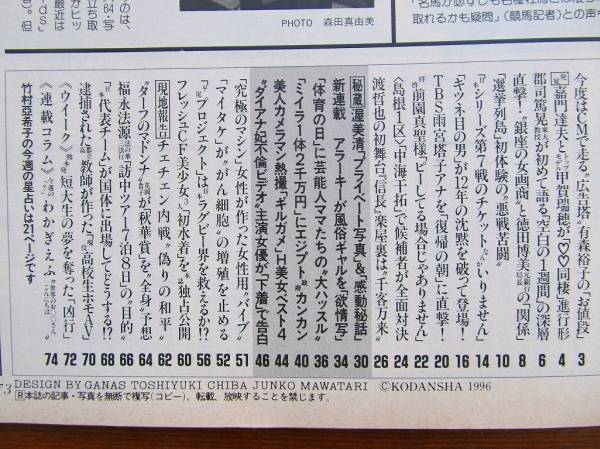 PHOTO 森田真由美
取れるかも疑問」(競馬記者)との声も
今度はCMで走る“広告塔”有森裕子の「お値段」 3
嘉門達夫とモデル甲賀瑞穂が「♡♡同棲」進行形 4
郡司篤晃教授が初めて語る「空白の1週間」の深層 6
直撃!“銀座の女画商”と徳田博美銀行局長の「関係」 8
「選挙列島」初体験の“悪戦苦闘” 10
「日本シリーズ第7戦のチケット」がいりません」 14
「キツネ目の男」が12年の沈黙を破って登場! 16
TBS・雨宮塔子アナを「復帰の朝」に直撃! 20
拝啓前園真聖様「ビーしてる場合じゃありません」 22
〈島根1区〉“中海干拓”で候補者が全面対決 24
渡哲也の初舞台「信長」楽屋裏は“千客万来” 26
秘蔵 渥美清「プライベート写真」&「感動秘話」 30
新連載 アラーキーが風俗ギャルを“欲情写” 34
「体育の日」に芸能人ママたちの“大ハッスル” 36
「ミイラ一体2千万円」にエジプト政府カンカン 40
美人カメラマン熱撮「ギルガメ」H美女ベスト4 44
“ダイアナ妃不倫ビデオ”主演女優が「下着」で告白 46
「究極のマシン」女性が作った女性用“バイブ” 51
「マイタケ」が“がん細胞”の増殖を止める 52
「平尾プロジェクト」は“ラグビー界を救えるか!? 56
フレッシュCF美少女3人「初水着」を本誌独占公開 60
現地報告 チェチェン内戦“偽りの和平” 62
“ターフのマドンナ”が「秋華賞」を“全身”予想 64
福永法源「訪中ツアー7泊8日」の“目的” 66
「日本代表チーム」が国体に出場してどうする!? 68
逮捕された教師が作った「現役高校生ホモAV」 70
《ウイーク》短大生の夢を奪った「凶行」 72
《連載コラム》わかぎえふ 74
竹村亜希子の今週の星占いは21ページです
73 DESIGN BY GANAS TOSHIYUKI CHIBA JUNKO MAWATARI ©KODANSHA 1996
Ⓡ本誌の記事・写真を無断で複写(コピー)、転載、放映することを禁じます。